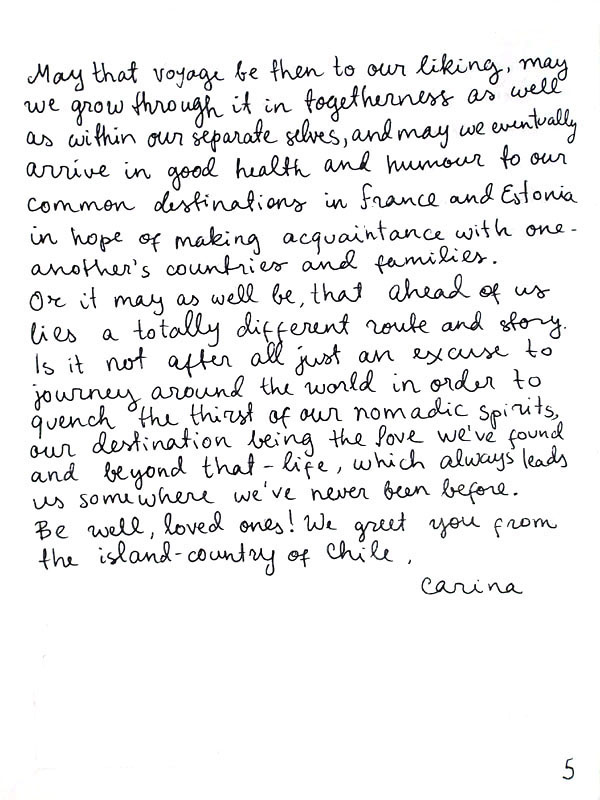 May that voyage be then to our liking, may
we grow through it in togetherness as well
as within our separate selves, and may we eventually
arrive in good health and humour to our
common destinations in France and Estonia
in hope of making acquaintance with one-
another's countries and families.
Or it may as well be, that ahead of us
lies a totally different route and story.
Is it not after all just an excuse to
journey around the world in order to
quench the thirst of our nomadic spirits,
our destination being the love we've found
and beyond that - life, which always leads
us somewhere we've never been before.
Be well, loved ones! We greet you from
the island-country of Chile,
Carina
5